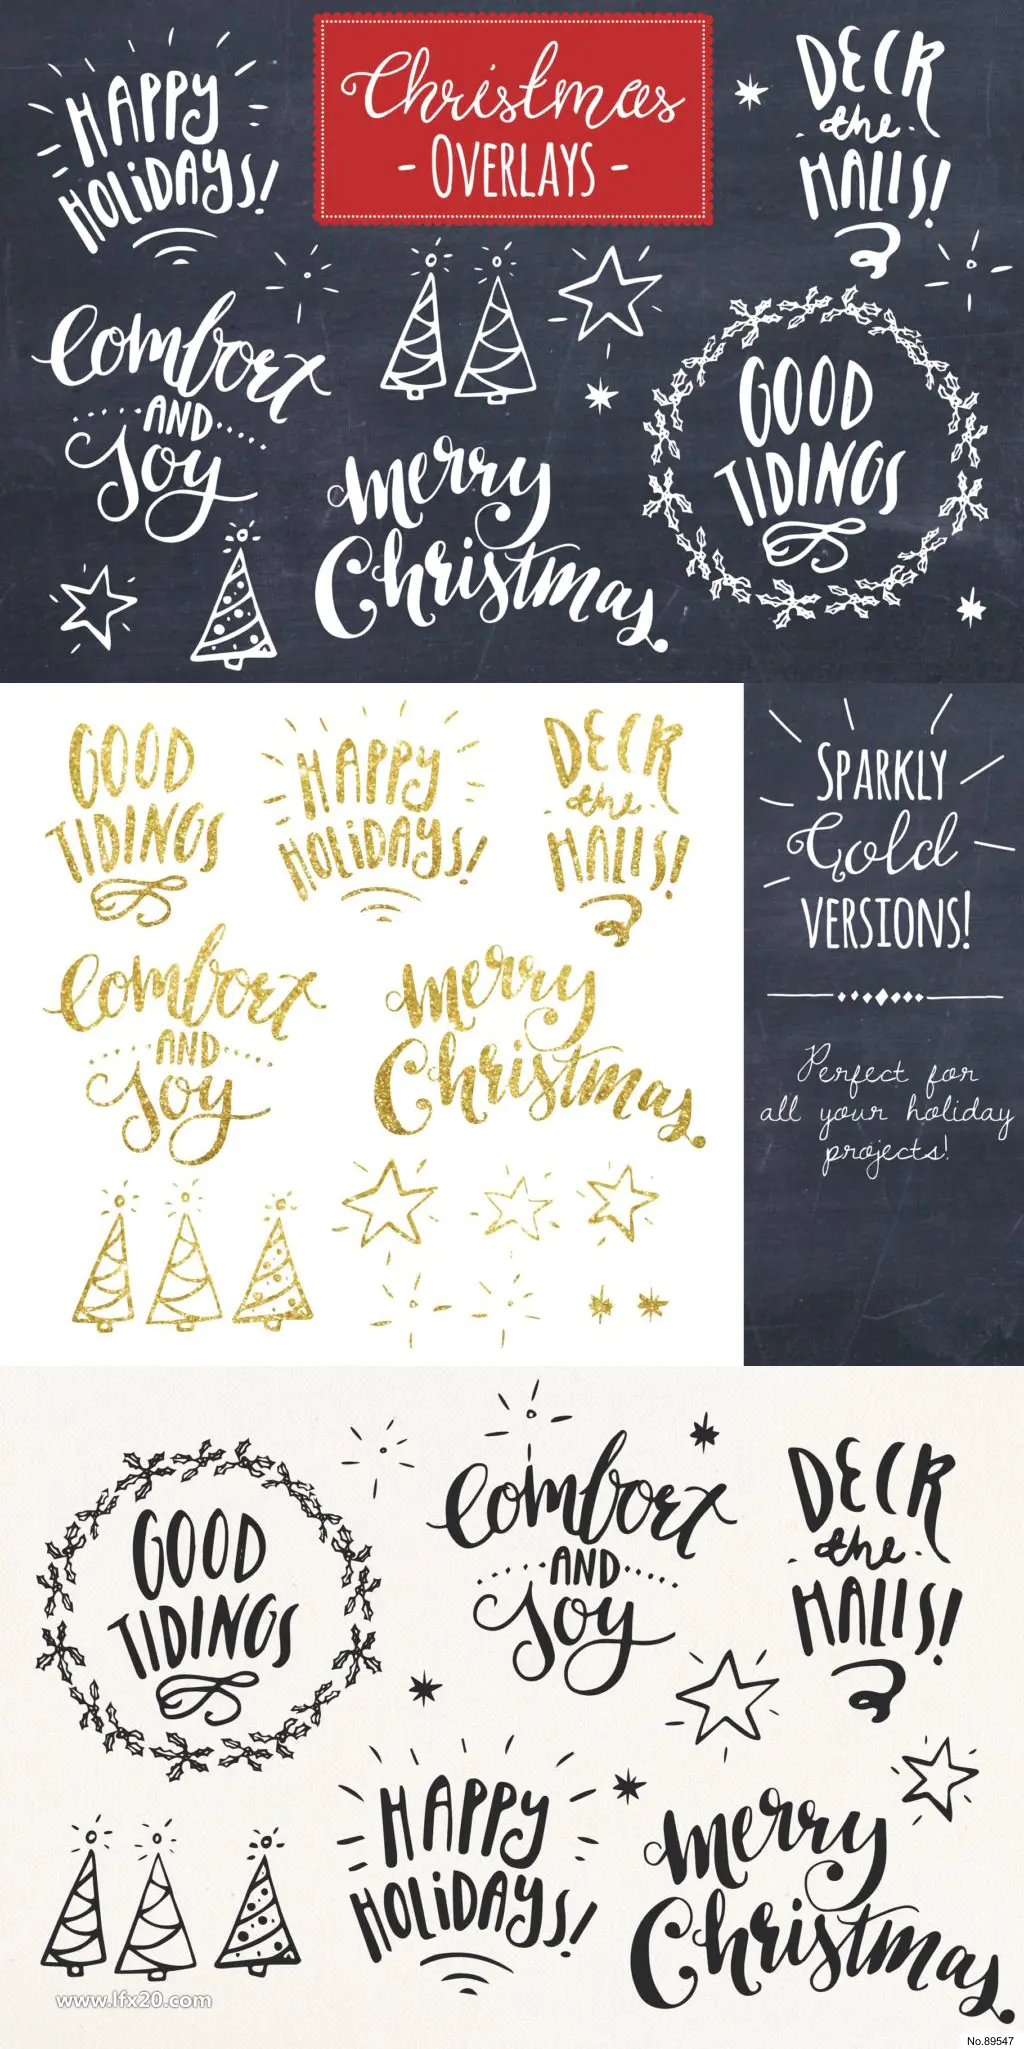 Christmas
- OVERLAYS -
HAPPY
HOLiDAYS!
DECK
the
HALLS!
Comfort
AND
Joy
GOOD
TIDINGS
merry
Christmas
GOOD
TIDINGS
HAPPY
HOLiDAYS!
DECK
the
HALLS!
Comfort
AND
Joy
merry
Christmas
SPARKLY
Gold
VERSIONS!
Perfect for
all your holiday
projects!
GOOD
TIDINGS
Comfort
AND
Joy
DECK
the
HALLS!
HAPPY
HOLiDAYS!
merry
Christmas
www.lfx20.com
No.89547